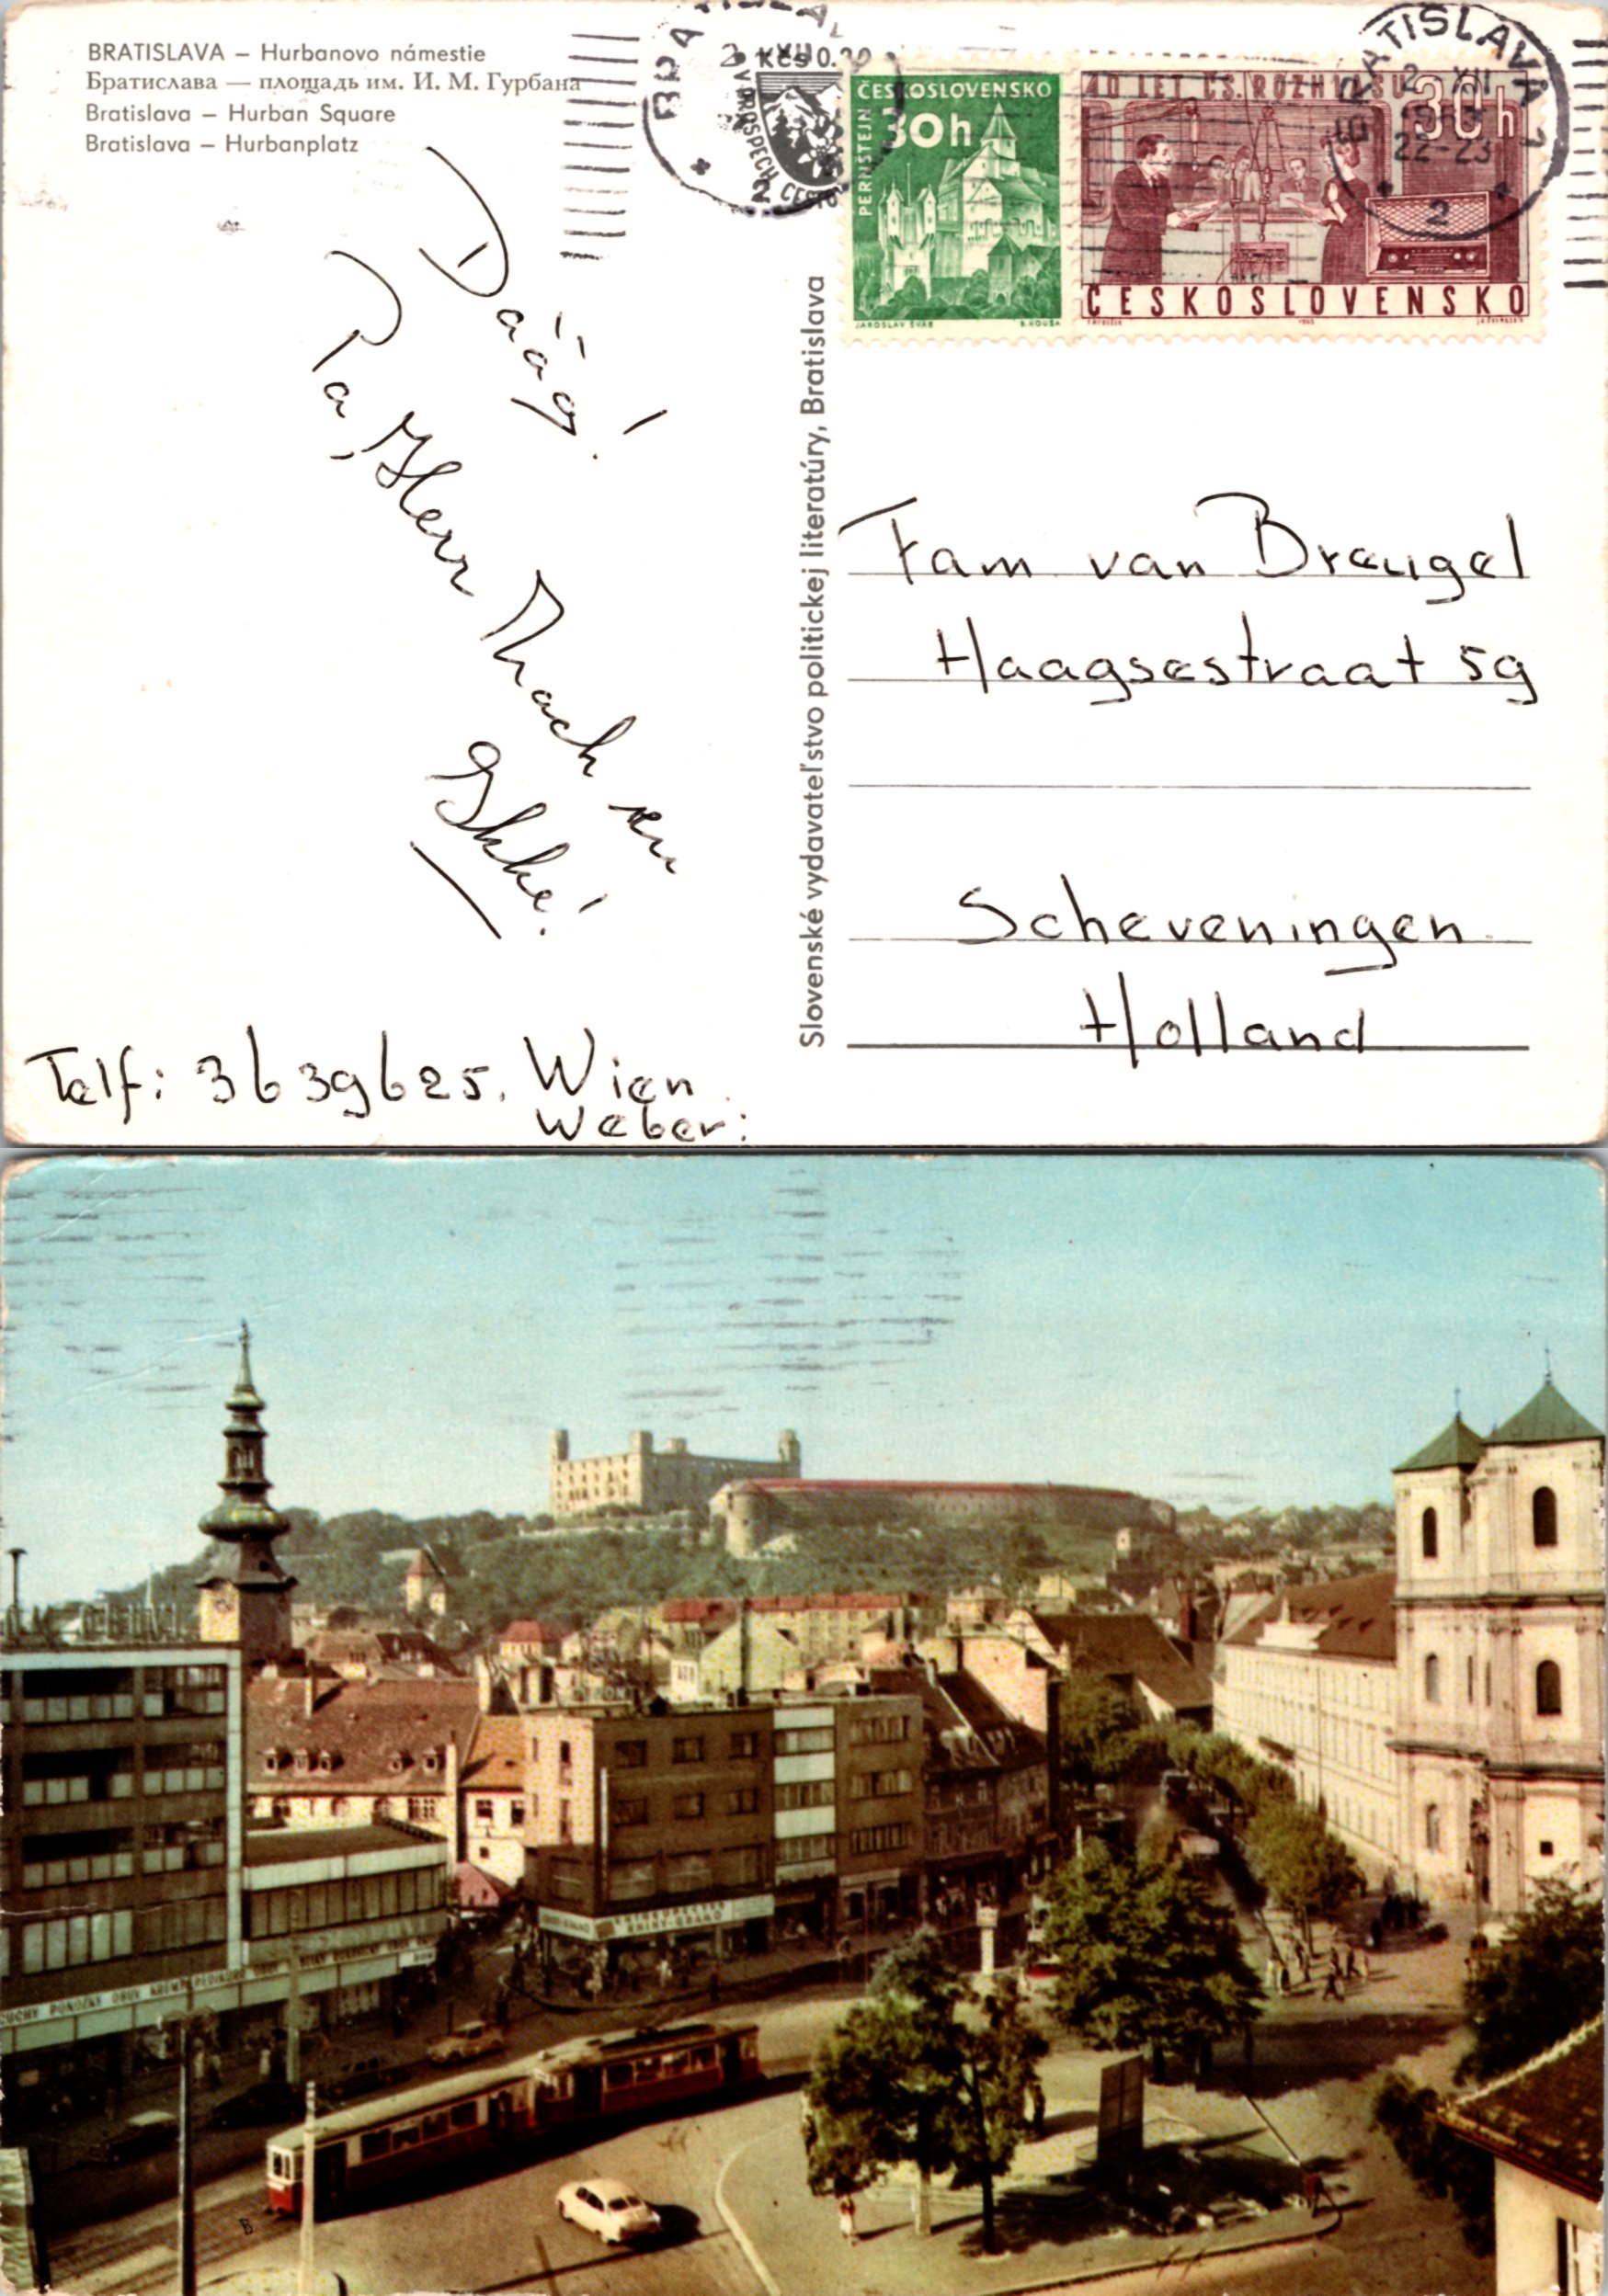 BRATISLAVA – Hurbanovo námestie
Братислава — площадь им. И. М. Гурбана
Bratislava – Hurban Square
Bratislava – Hurbanplatz
Kčs 0.30
V PROSPECH
BRATISLAVA
2 XII
22-23
2
ČESKOSLOVENSKO
30h
PERNŠTEJN
JAROSLAV ŠVÁB B. HOUSA
40 LET ČS. ROZHLASU
30h
ČESKOSLOVENSKO
Dáág!
Pa, Herr
en
Slovenské vydavateľstvo politickej literatúry, Bratislava
Fam van Breugel
Haagsestraat 59
Scheveningen
Holland
Telf: 3639625. Wien
Weber:
PONOŽKY OBUV